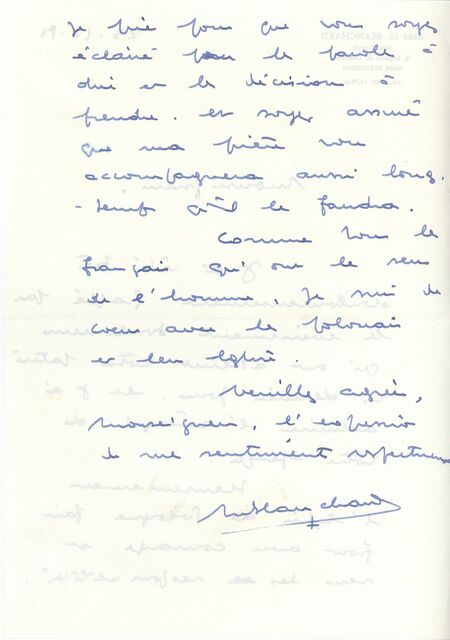 Je prie pour que vous soyez
éclairé pour la parole à
dire et la décision à
prendre. et soyez assuré
que ma prière vous
accompagnera aussi long.
- temps qu'il le faudra.
Comme tous les
français qui ont le sens
de l'homme, je suis de
coeur avec les polonais
et leur Eglise.
Veuillez agréer,
Monseigneur, l'expression
de mes sentiments respectueux
M Blanchard